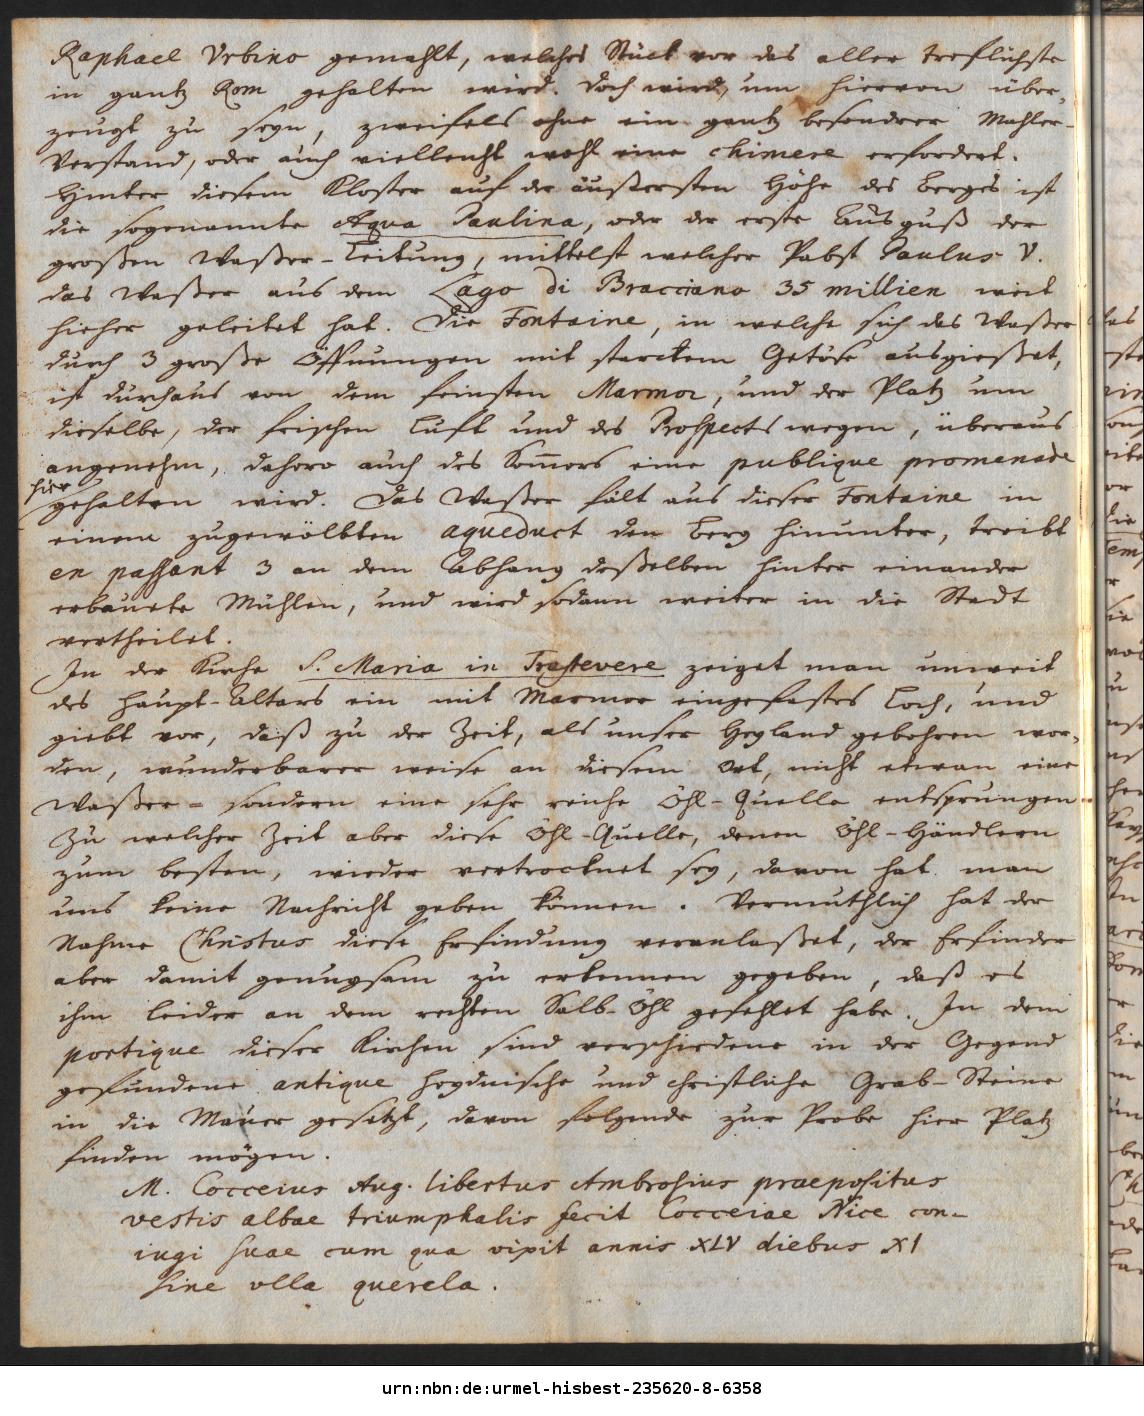 Raphael Vrbino gemahlt, welches Stück vor das aller treflichste
in gantz Rom gehalten wird. Doch wird, um hiervon über-
zeugt zu seyn, zweifels ohne ein gantz besondrer Mahler-
Verstand, oder auch vielleicht wohl eine chimere erfordert.
Hinter diesem Kloster auf der äußersten Höhe des Berges ist
die sogenannte Aqua Paulina, oder der erste Ausguß der
großen Waßer-Leitung, mittelst welcher Pabst Paulus V.
das Waßer aus dem Lago di Bracciano 35 millien weit
hieher geleitet hat. Die Fontaine, in welche sich das Waßer
durch 3 große Öffnungen mit starckem Getöse ausgießet,
ist durchaus von dem feinsten Marmor, und der Platz um
dieselbe, der frischen Luft und des Prospects wegen, überaus
angenehm, dahero auch des Som̄ers eine publique promenade
hier
gehalten wird. Das Waßer fält aus dieser Fontaine in
einem zugewölbten aqueduct den Berg hinunter, treibt
en passant 3 an dem Abhang deßelben hinter einander
erbauete Mühlen, und wird sodann weiter in die Stadt
vertheilet.
In der Kirche S. Maria in Trastevere zeiget man unweit
des Haupt-Altars ein mit Marmor eingefastes Loch, und
giebt vor, daß zu der Zeit, als unser Heyland gebohren wor-
den, wunderbarer weise an diesem Ort, nicht etwan eine
Waßer- sondern eine sehr reiche Öhl-Quelle entsprungen.
Zu welcher Zeit aber diese Öhl-Quelle, denen Öhl-Händlern
zum besten, wieder vertrocknet sey, davon hat man
uns keine Nachricht geben können. Vermuthlich hat der
Nahme Christus diese Erfindung veranlaßet, der Erfinder
aber damit genugsam zu erkennen gegeben, daß es
ihm leider an dem rechten Salb-Öhl gefehlet habe. In dem
portique dieser Kirchen sind verschiedene in der Gegend
gefundene antique heydnische und christliche Grab-Steine
in die Mauer gesetzt, davon folgende zur Probe hier Platz
finden mögen.
M. Cocceius Aug. libertus Ambrosius praepositus
vestis albae triumphalis fecit Cocceiae Nice con-
iugi suae cum qua vixit annis XLV diebus XI
sine vlla querela.
urn:nbn:de:urmel-hisbest-235620-8-6358